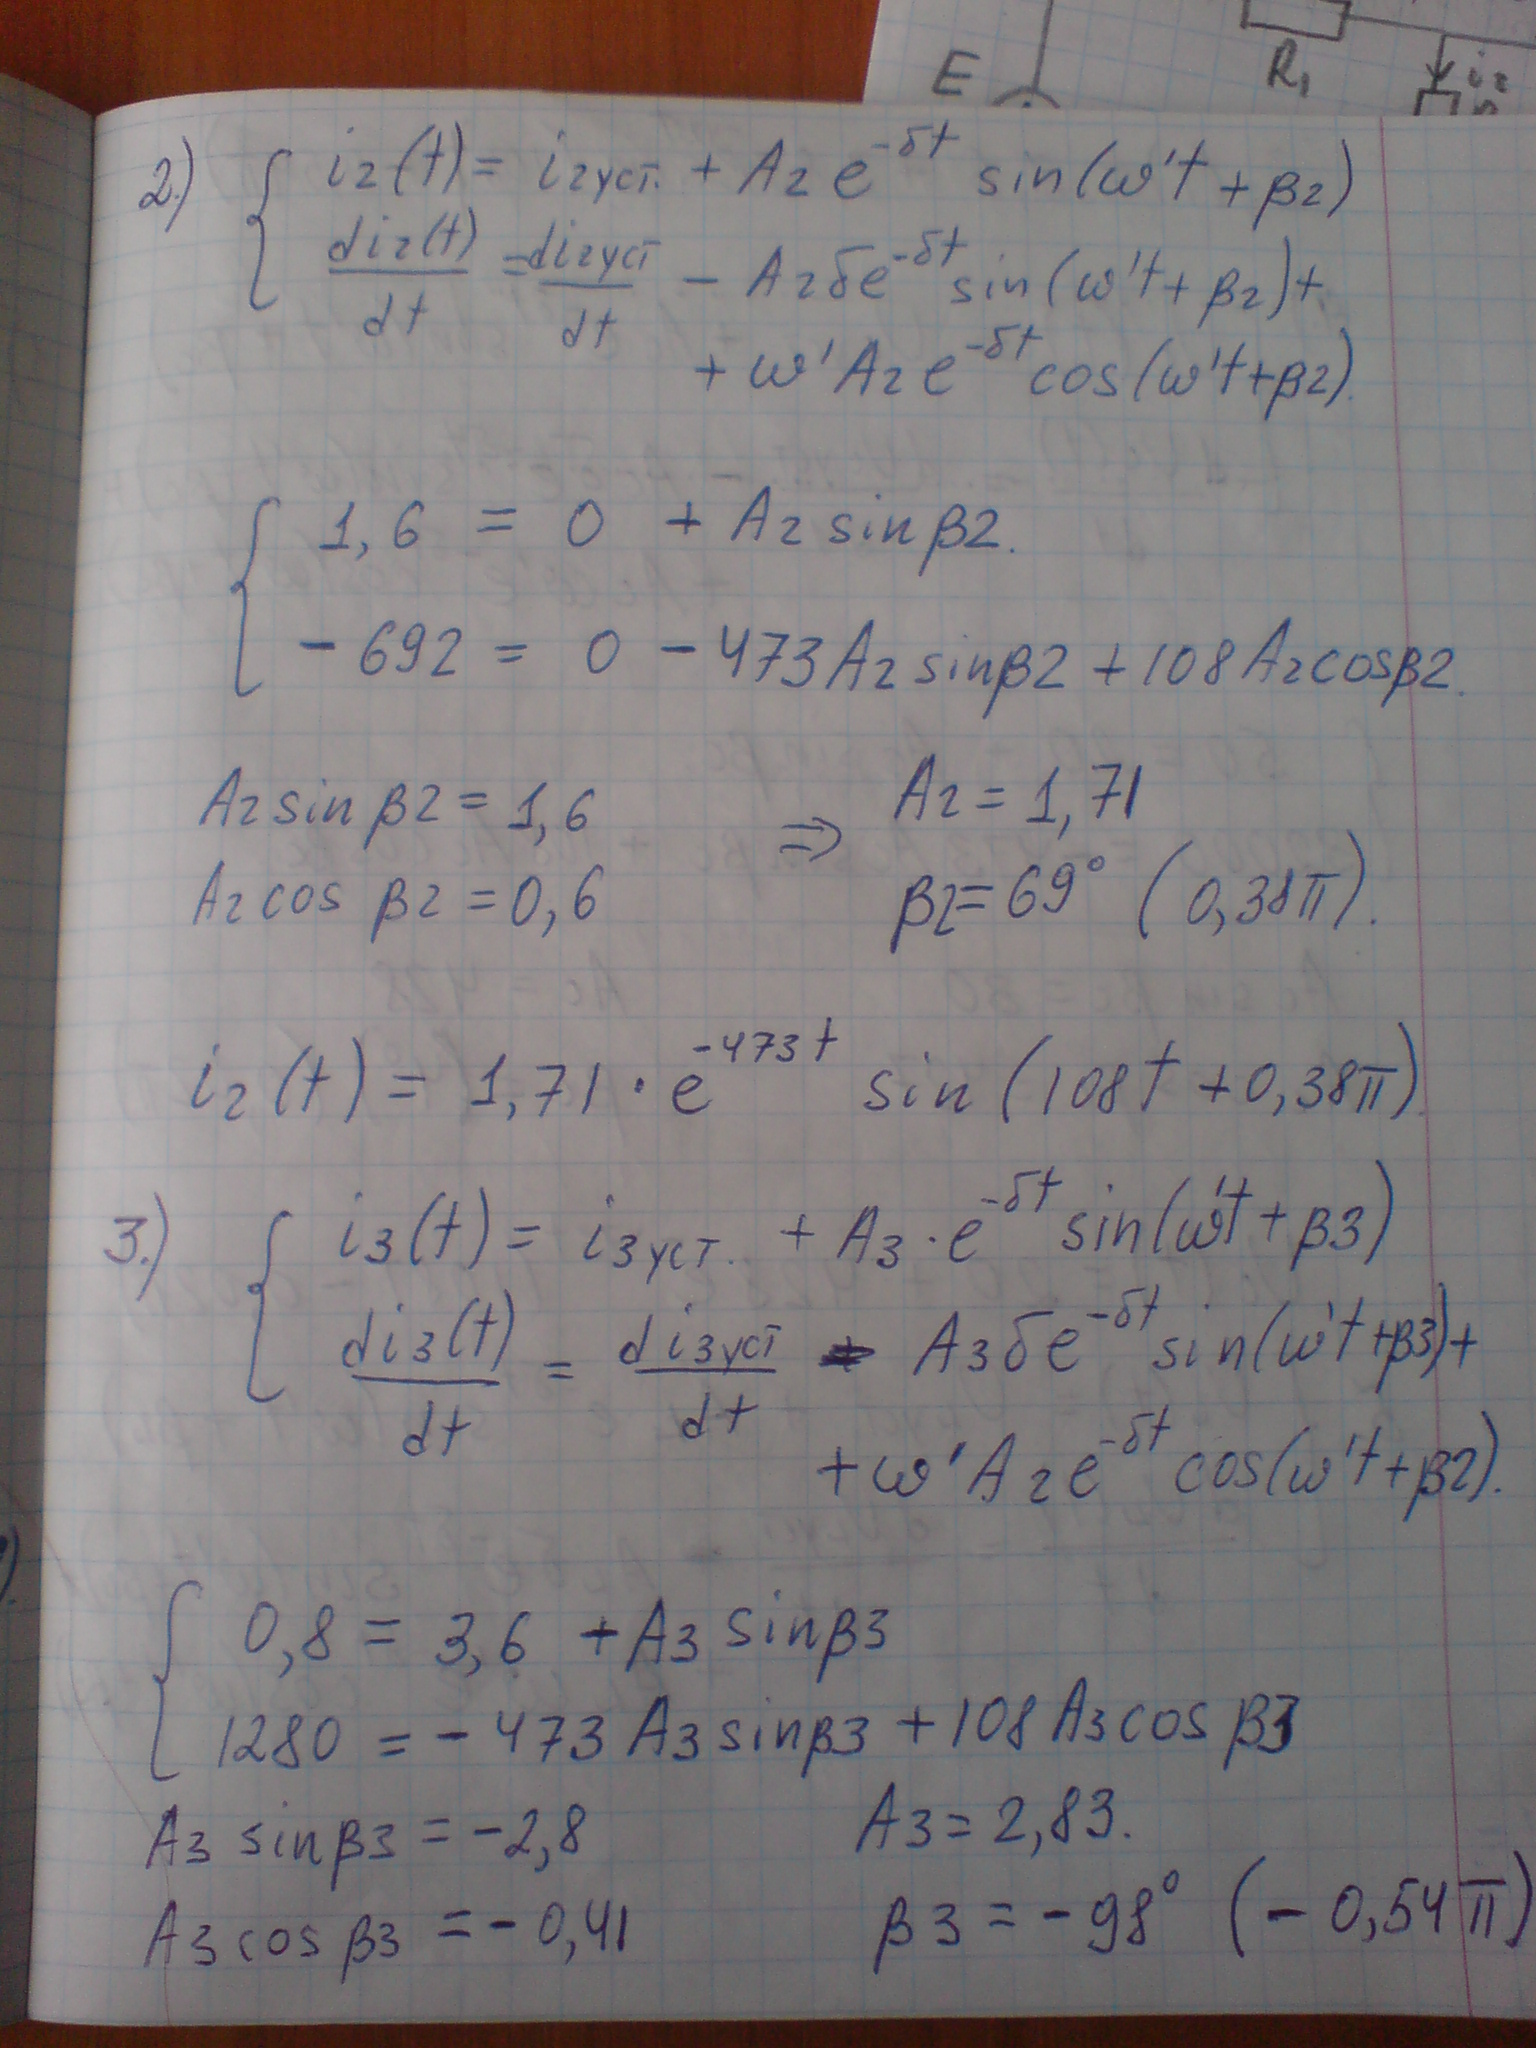 E
R₁
i₂
2.) { i₂(t) = i₂уст. + A₂ e^-δt sin(ω't + β₂)
di₂(t)/dt = di₂уст/dt - A₂δe^-δt sin(ω't + β₂) +
+ ω'A₂e^-δt cos(ω't + β2).
{ 1,6 = 0 + A₂ sin β2.
- 692 = 0 - 473 A₂ sin β2 + 108 A₂ cos β2.
A₂ sin β2 = 1,6 ⇒ A₂ = 1,71
A₂ cos β₂ = 0,6 β₂ = 69° (0,38π).
i₂(t) = 1,71 · e^-473t sin(108t + 0,38π)
3.) { i₃(t) = i₃уст. + A₃ · e^-δt sin(ω't + β3)
di₃(t)/dt = di₃уст/dt - A₃δe^-δt sin(ω't + β3) +
+ ω'A₂e^-δt cos(ω't + β2).
{ 0,8 = 3,6 + A₃ sin β3
1280 = - 473 A₃ sin β3 + 108 A₃ cos β3
A₃ sin β3 = - 2,8 A₃ = 2,83.
A₃ cos β3 = - 0,41 β3 = - 98° (- 0,54π)